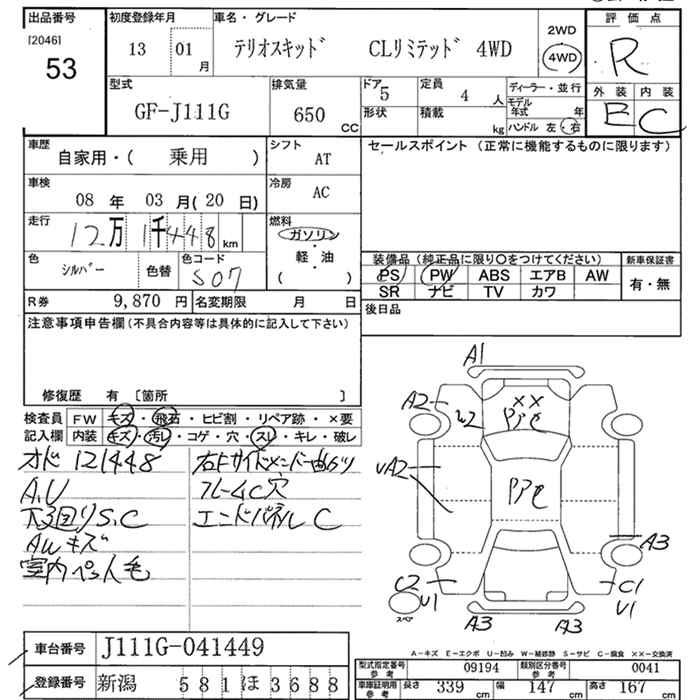 出品番号 初度登録年月 車名・グレード 評価点
[2046] 53 13 01月 テリオスキッド CLリミテッド 4WD 2WD 4WD R
型式 排気量 ドア 定員 ディーラー・並行 外装 内装
GF-J111G 650 CC 5 4 人 モデル年式 年 E C
形状 積載 kg ハンドル 左・右
車歴 シフト セールスポイント (正常に機能するものに限ります)
自家用・( 乗用 ) AT
車検 冷房
08年 03月(20日) AC
走行 燃料
12万1千448km ガソリン
軽・油
( )
色 色替 色コード
シルバー S07
装備品 (純正品に限り○をつけてください) 新車保証書
PS PW ABS エアB AW 有・無
SR ナビ TV カワ
R券 9,870円 名変期限 月 日 後日品
注意事項申告欄 (不具合内容等は具体的に記入して下さい)
修復歴 有 〔箇所 〕
検査員 FW キズ・飛石・ヒビ割・リペア跡・×要
記入欄 内装 キズ・汚レ・コゲ・穴・スレ・キレ・破レ
オド 121448 右Fサイドメンバー曲がり
A.U フレームC穴
下回りS.C エンドパネルC
AWキズ
室内ペット人毛
A1
A2 W2 ××
PPC
UA2 PPC
A3
C2 U1 C1 U1
スペア A3 A3
A-キズ E-エクボ U-凹み W-補修跡 S-サビ C-腐食 ××-交換済
車台番号 J111G-041449
登録番号 新潟 581 ほ 3688
型式指定番号 参考 09194 類別区分番号 参考 0041
車庫証明用 参考 長さ 339 cm 幅 147 cm 高さ 167 cm